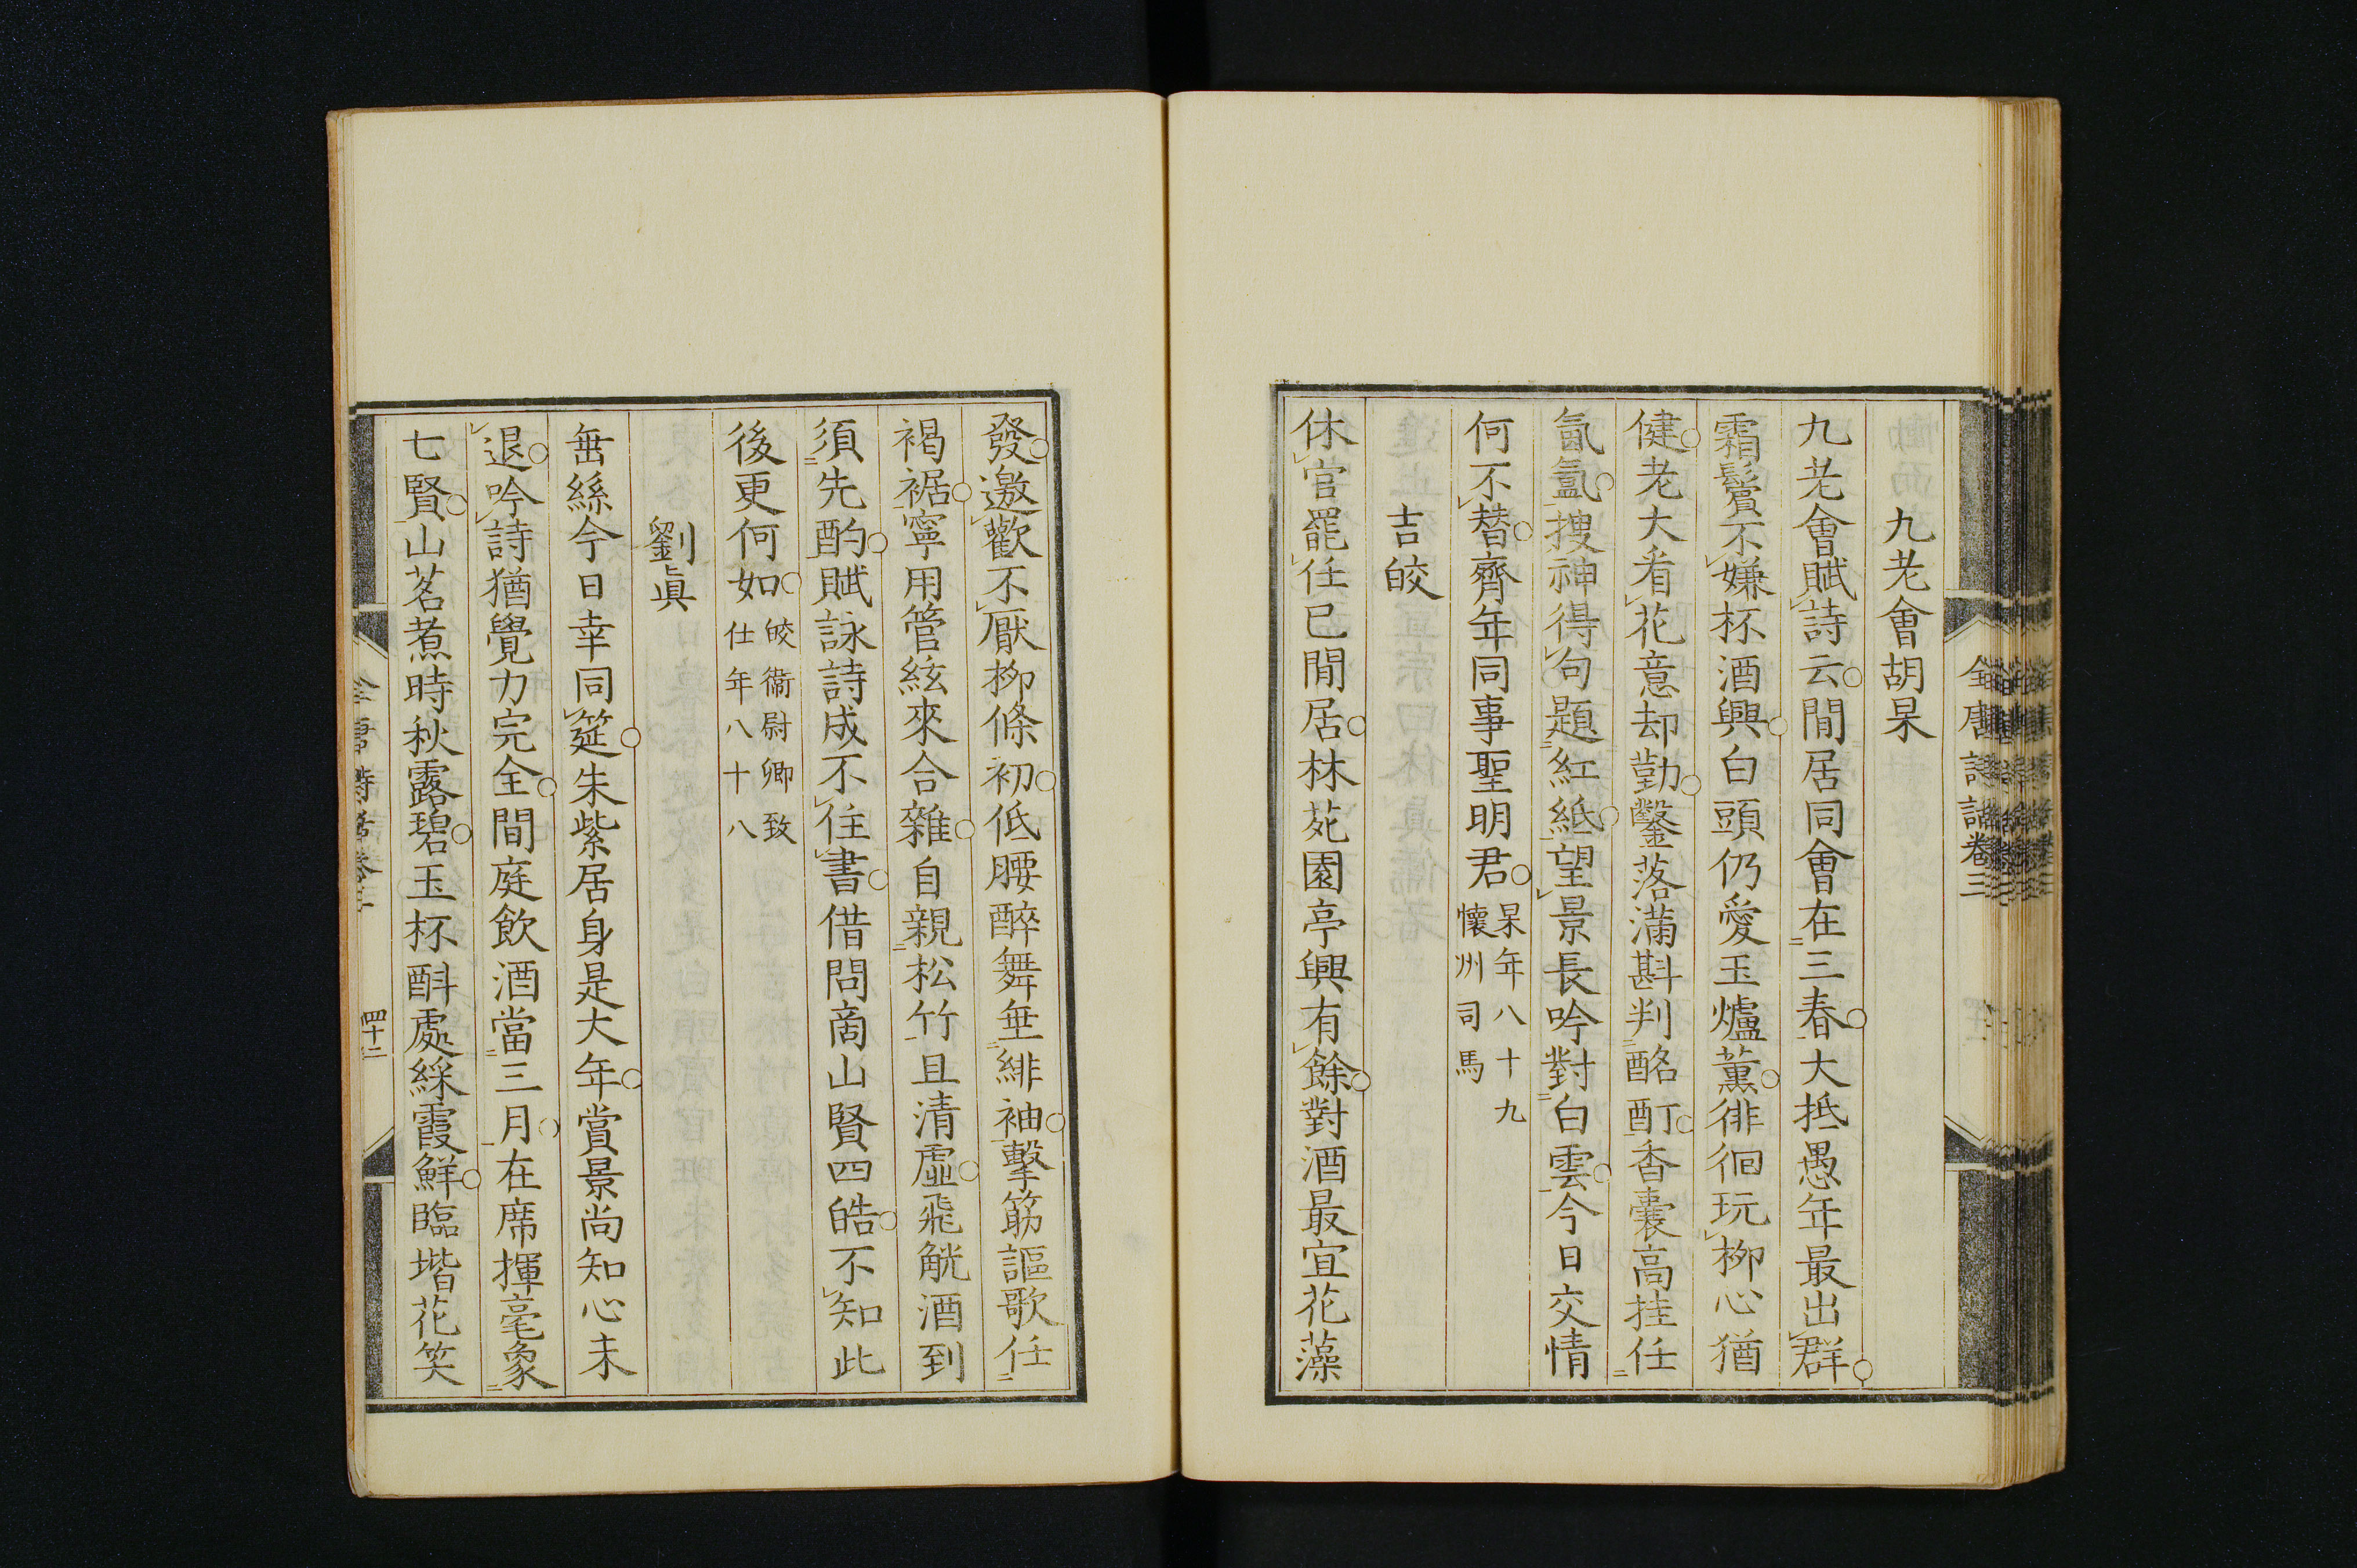 全唐詩話卷三
九老會胡杲
九老會賦詩云閒居同會在三春大抵愚年最出群
霜鬢不嫌杯酒興白頭仍愛玉爐薰徘徊玩柳心猶
健老大看花意却勤鑿落滿斟判酩酊香囊高挂任
氤氳搜神得句題紅紙望景長吟對白雲今日交情
何不替齊年同事聖明君杲年八十九
懷州司馬
吉皎
休官罷任已閒居林苑園亭興有餘對酒最宜花藻
發邀歡不厭柳條初低腰醉舞垂緋袖擊筯謳歌任
褐裾寧用管絃來合雜自親松竹且清虛飛觥酒到
須先酌賦詠詩成不住書借問商山賢四皓不知此
後更何如皎衞尉卿致
仕年八十八
劉眞
垂絲今日幸同筵朱紫居身是大年賞景尚知心未
退吟詩猶覺力完全閒庭飲酒當三月在席揮毫象
七賢山茗煮時秋露碧玉杯酙處綵霞鮮臨堦花笑
全唐詩話卷三
四十二